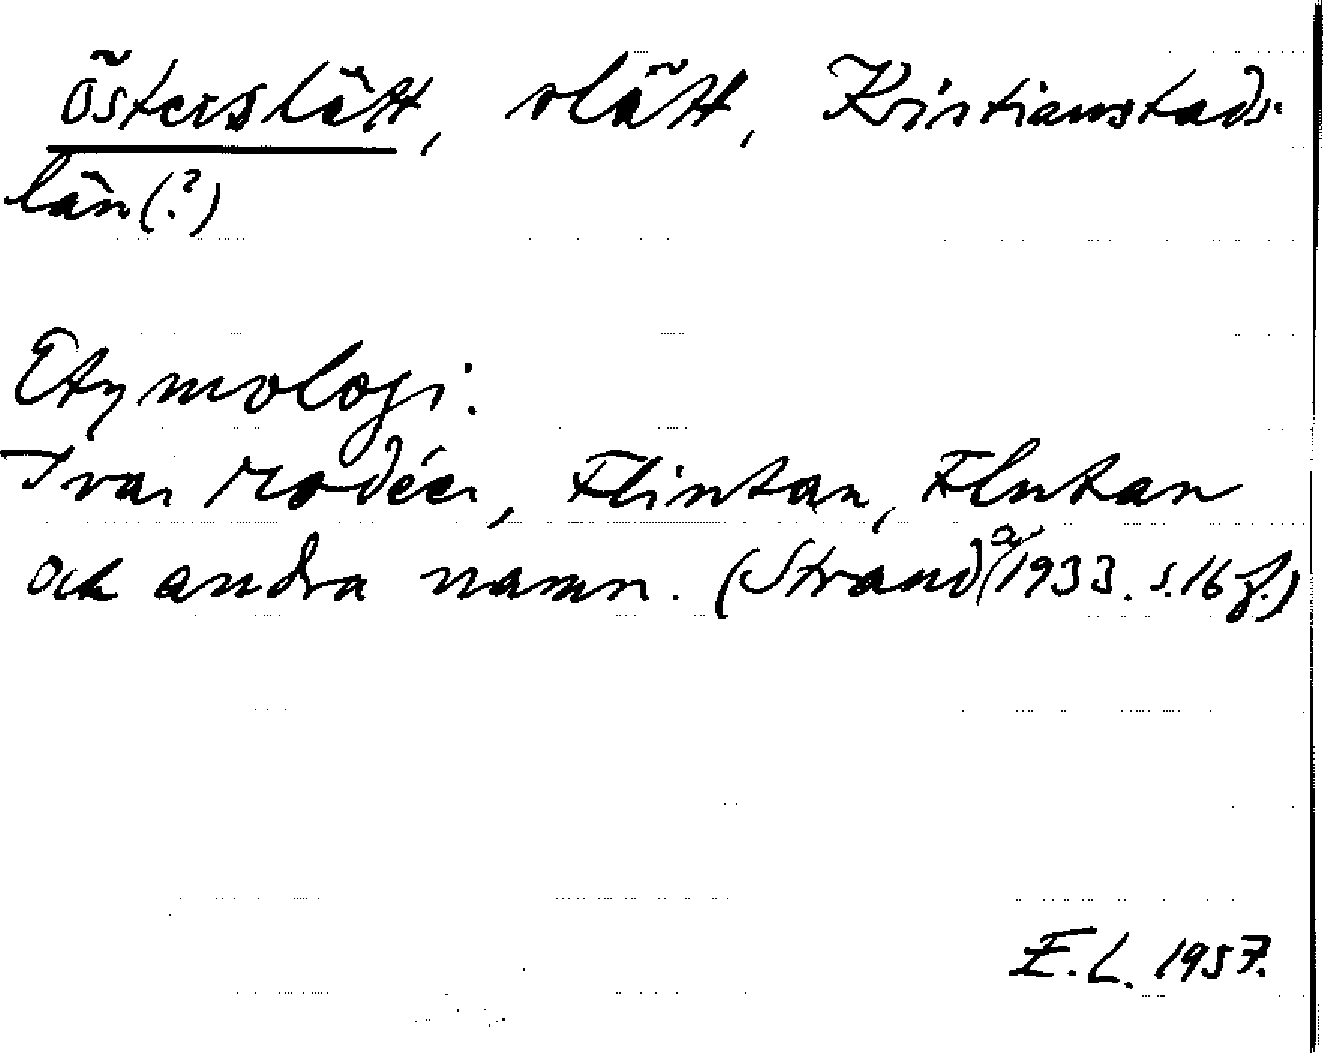 Österslätt, slätt, Kristianstads-
län (?)
Etymologi:
Ivar Modéer, Flintan, Flutan
och andra namn. (Strand 1933. s. 16 f.)
E.L. 1957.